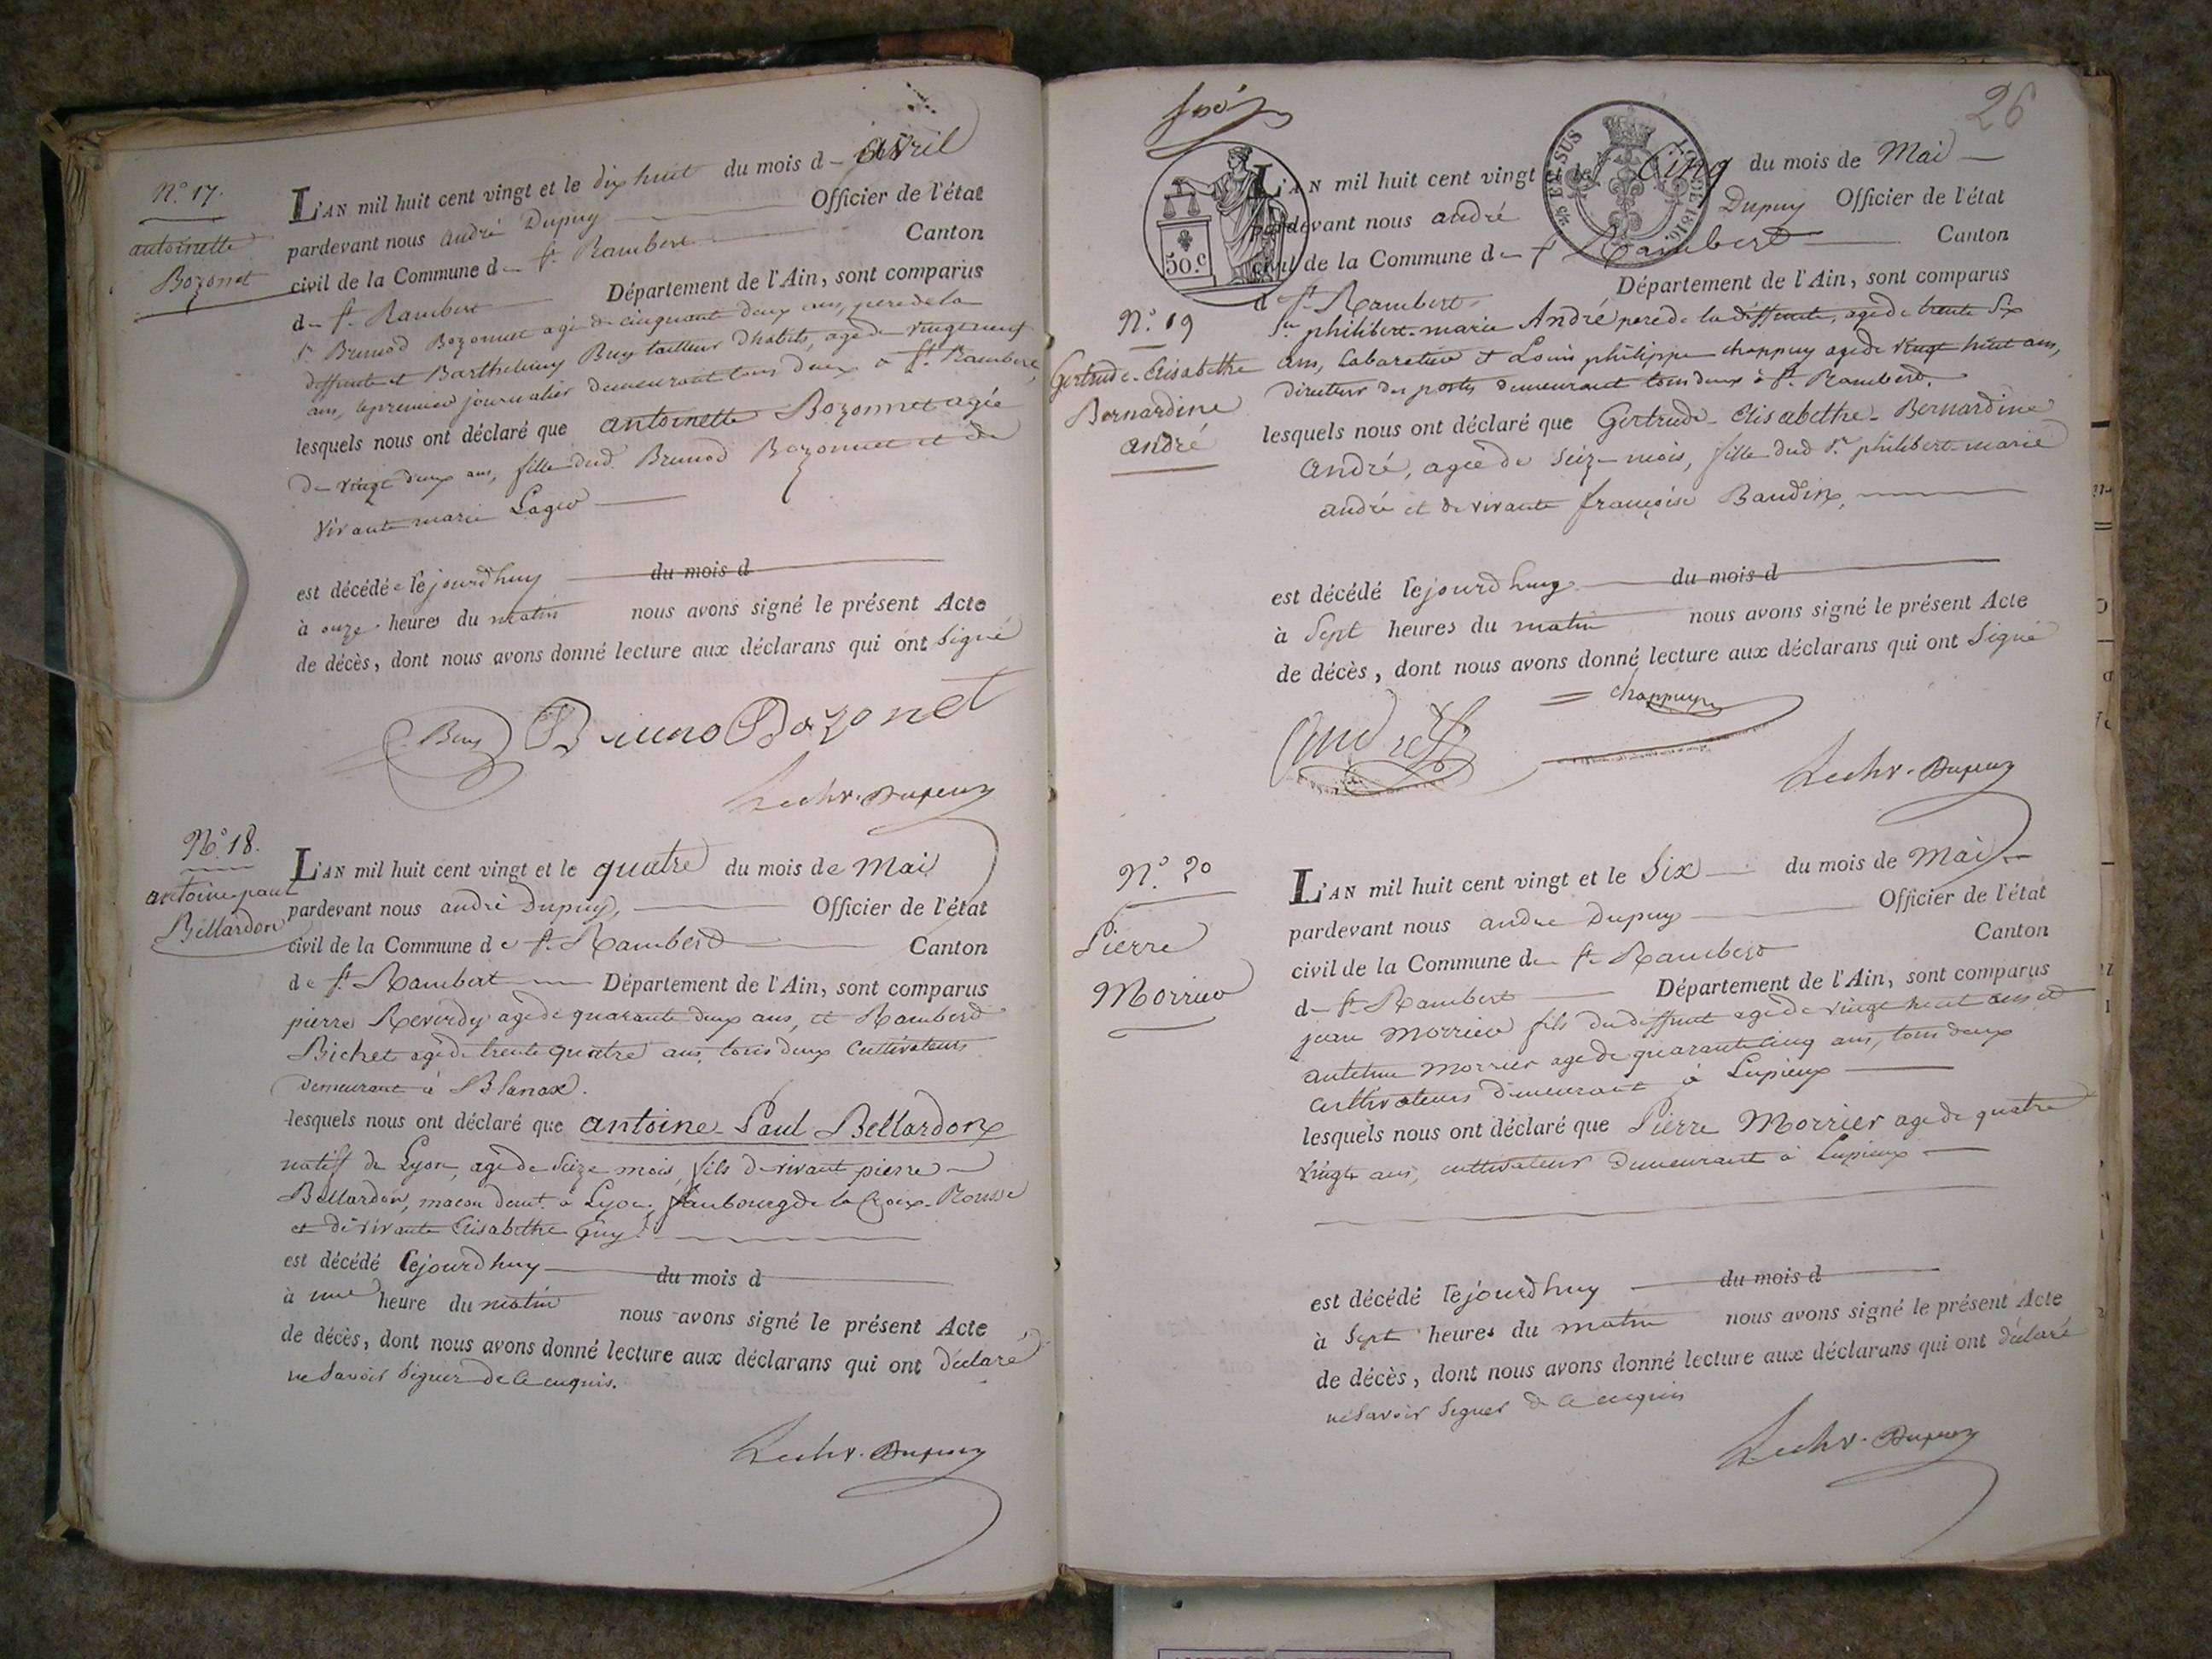 N.º 17.
antoinette
Bozonet
L'AN mil huit cent vingt et le dix huit du mois d avril
pardevant nous andré Dupuy Officier de l'état
civil de la Commune d St. Rambert Canton
d St. Rambert Département de l'Ain, sont comparus
Sr. Brunod Bozonnet agé de cinquante deux ans, pere de la
deffunte et Barthelemy Buy tailleur d'habits, agé de vingt neuf
ans, le premier journalier demeurant tous deux a St. Rambert,
lesquels nous ont déclaré que antoinette Bozonnet agée
de vingt deux ans, fille dud. Brunod Bozonnet et de
vivante marie Lager
est décédée le jourd'huy du mois d
à onze heures du matin nous avons signé le présent Acte
de décès, dont nous avons donné lecture aux déclarans qui ont signé
Buy Bruno Bozonet
Dupuy
N.º 18.
antoine paul
Bellardon
L'AN mil huit cent vingt et le quatre du mois de Mai
pardevant nous andré Dupuy, Officier de l'état
civil de la Commune de St. Rambert Canton
de St. Rambert Département de l'Ain, sont comparus
pierre Reverdy agé de quarante deux ans, et Rambert
Bichet agé de trente quatre ans, tous deux cultivateurs
demeurant à Blanax.
lesquels nous ont déclaré que antoine Paul Bellardon
natif de Lyon, agé de seize mois, fils de vivant pierre
Bellardon, macon demt. à Lyon, faubourg de la Croix-Rousse
et de vivante Elisabethe Guy
est décédé le jourd'huy du mois d
à une heure du matin nous avons signé le présent Acte
de décès, dont nous avons donné lecture aux déclarans qui ont déclaré
ne savoir signer de ce enquis.
Dupuy
26
50.c
EN SUS
LOI DE 1816.
L'AN mil huit cent vingt et le Cinq du mois de Mai
pardevant nous andré Dupuy Officier de l'état
civil de la Commune d St Rambert Canton
d St. Rambert Département de l'Ain, sont comparus
N.º 19
Gertrude-Elisabethe
Bernardine
andré
Sr. philibert-marie André pere de la deffunte, agé de trente six
ans, Cabaretier et Louis philippe chappuy agé de vingt huit ans,
directeur des postes demeurant tous deux à St. Rambert.
lesquels nous ont déclaré que Gertrude-Elisabethe-Bernardine
André, agée de seize mois, fille dud Sr. philibert-marie
andré et de vivante françoise Baudin,
est décédé le jourd'huy du mois d
à sept heures du matin nous avons signé le présent Acte
de décès, dont nous avons donné lecture aux déclarans qui ont signé
andré chappuy
Dupuy
N.º 20
Pierre
Morrier
L'AN mil huit cent vingt et le six du mois de Mai
pardevant nous andré Dupuy Officier de l'état
civil de la Commune d St. Rambert Canton
d St. Rambert Département de l'Ain, sont comparus
jean Morrier fils du deffunt agé de vingt huit ans et
antelme Morrier agé de quarante cinq ans, tous deux
cultivateurs demeurant à Lupieux
lesquels nous ont déclaré que Pierre Morrier agé de quatre
vingts ans, cultivateur demeurant à Lupieux
est décédé le jourd'huy du mois d
à sept heures du matin nous avons signé le présent Acte
de décès, dont nous avons donné lecture aux déclarans qui ont déclaré
ne savoir signer de ce enquis
Dupuy